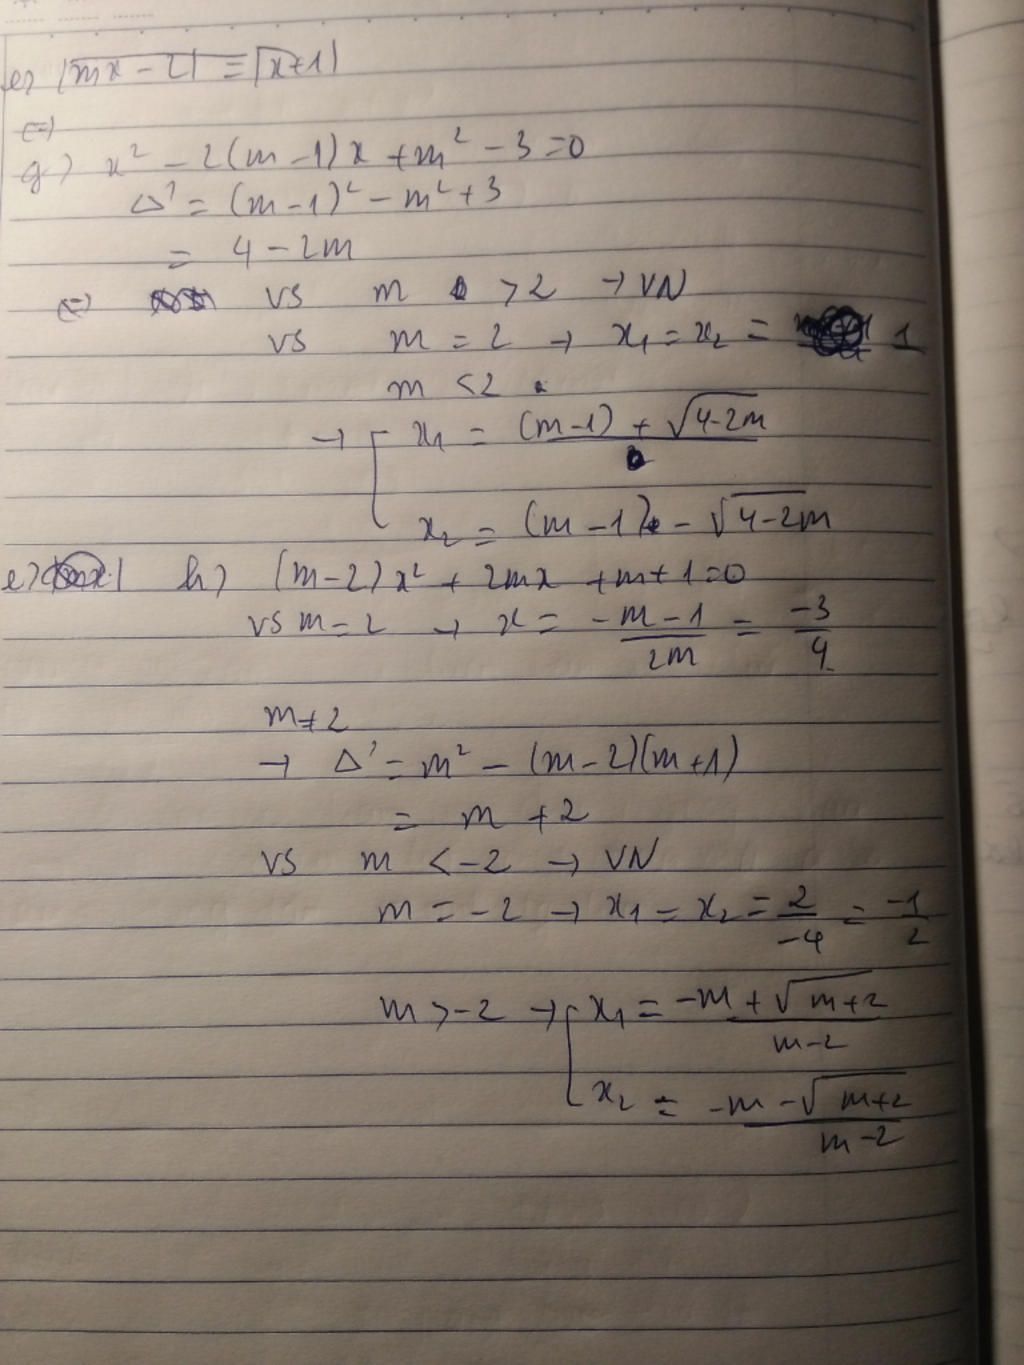 e) |mx - 2| = |x+1|
<=>
g) x² - 2(m-1)x + m² - 3 = 0
Δ' = (m-1)² - m² + 3
= 4 - 2m
<=> vs m > 2 → VN
vs m = 2 → x₁ = x₂ = 1
m < 2
→ [ x₁ = (m-1) + √(4-2m)
x₂ = (m-1) - √(4-2m)
e) h) (m-2)x² + 2mx + m+1=0
vs m = 2 → x = (-m-1)/(2m) = -3/4
m ≠ 2
→ Δ' = m² - (m-2)(m+1)
= m + 2
vs m < -2 → VN
m = -2 → x₁ = x₂ = 2/-4 = -1/2
m > -2 → [ x₁ = (-m + √(m+2))/(m-2)
x₂ = (-m - √(m+2))/(m-2)